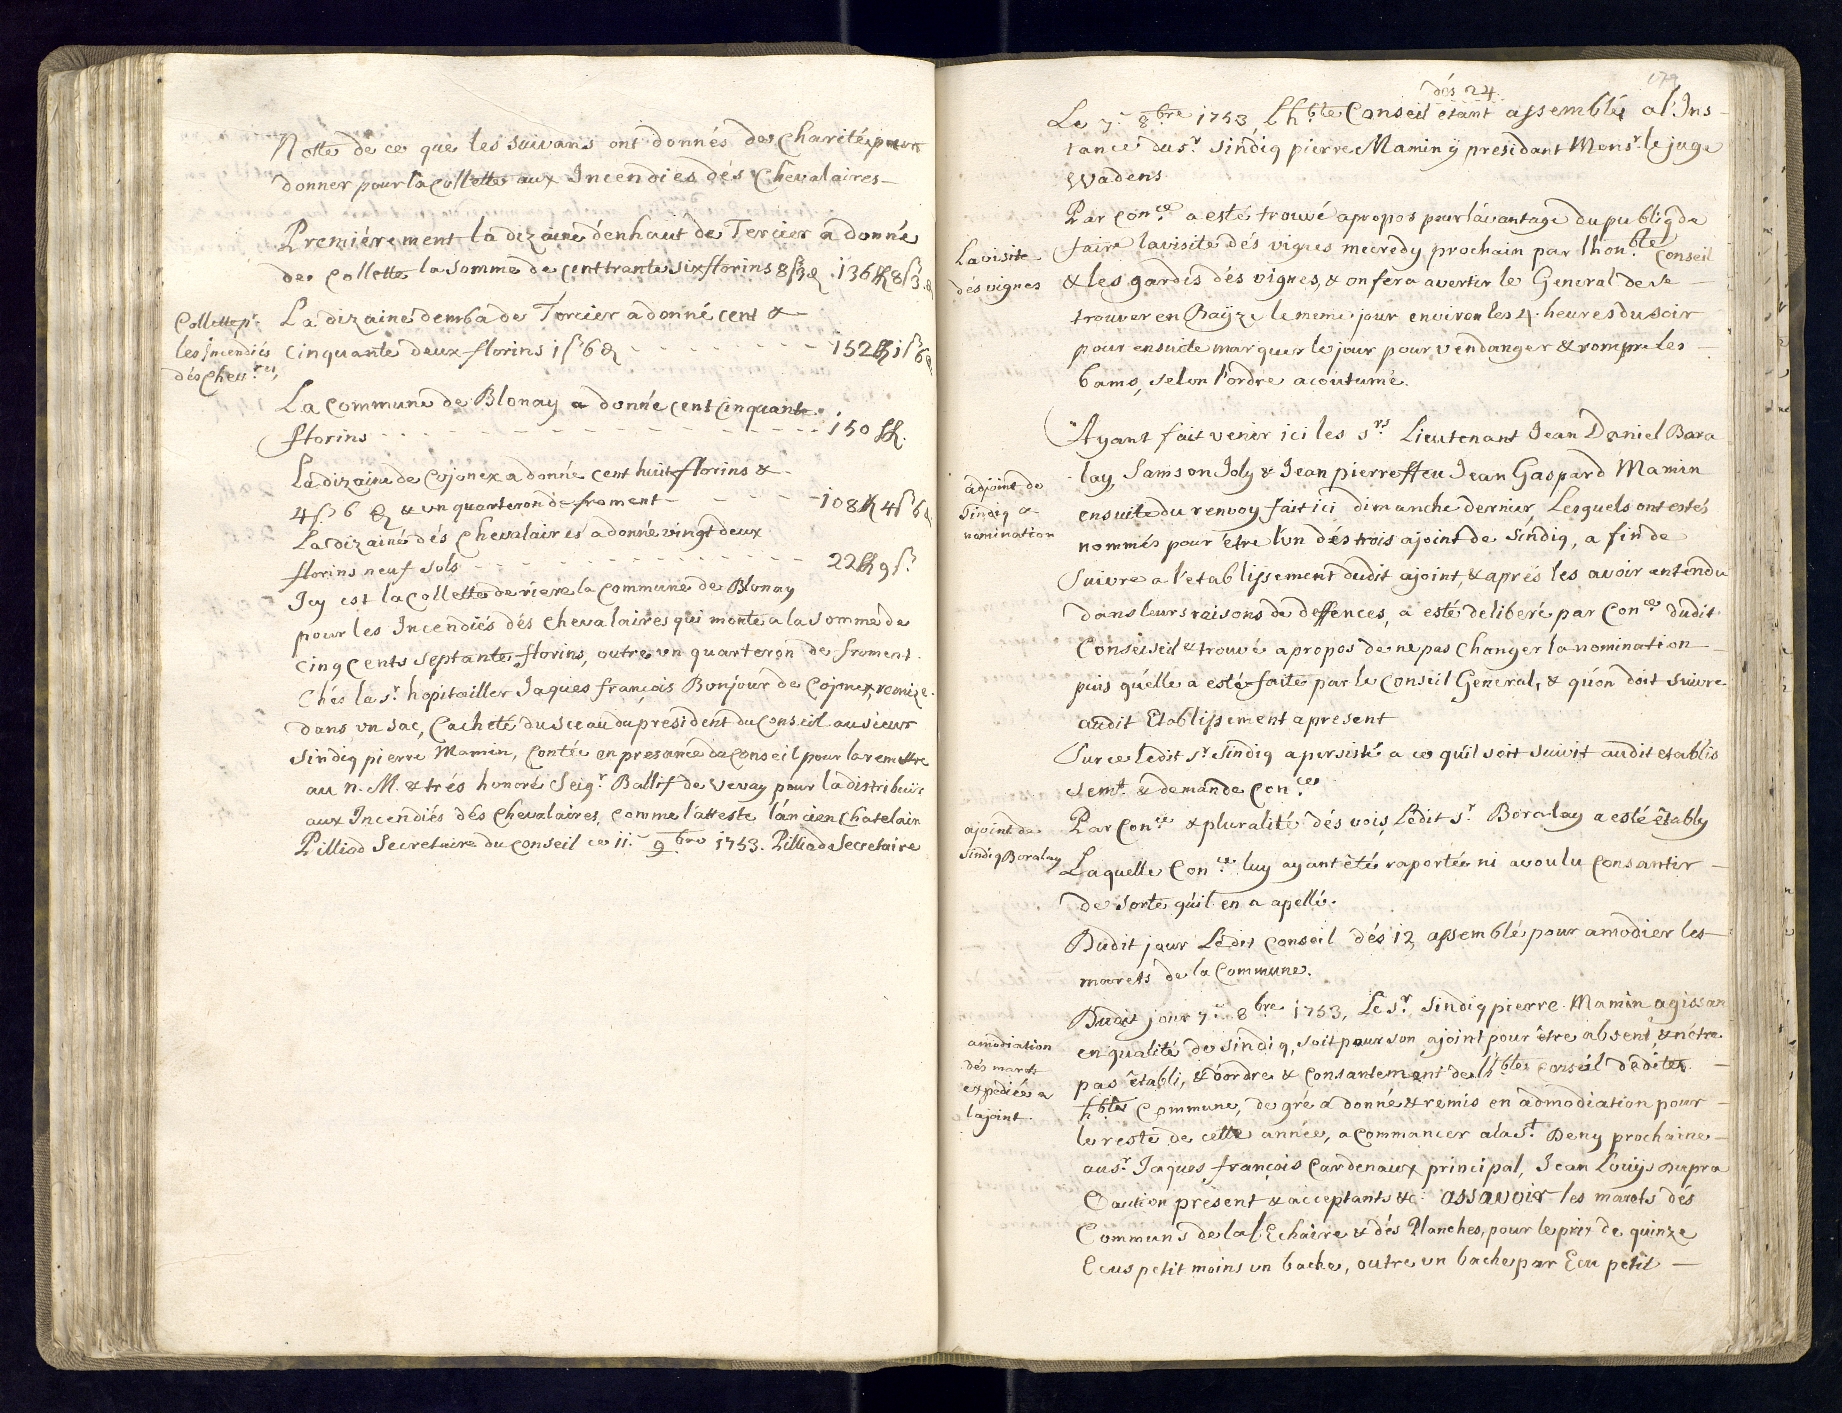 Notte de ce que les suivans ont donnés de Charité pour
donner pour la Collette aux Incendiés dés Chevalaires
Premiérement la dizaine d'enhaut de Tercier a donné
de Collette la somme de cent trante six florins 8 ß 3 d. 136 ff 8 ß 3 d
Collette pr.
les Incendiés
dés Chevres,
La dizaine demba de Tercier a donné cent &
Cinquante deux florins 1 ß 6 d - - - 152 ff 1 ß 6 d
La Commune de Blonay a donné cent cinquante
florins - - - 150 ff.
La dizaine de Cojonex a donné cent huit florins &
4 ß 6 d & un quarteron de froment - - - 108 ff 4 ß 6 d
La dizaine dés Chevalaires a donné vingt deux
florins neuf sols - - - 22 ff 9 ß
Icy est la Collette de riere la Commune de Blonay
pour les Incendiés dés Chevalaires qui monte a la somme de
cinq cents septante florins, outre un quarteron de froment.
Chés le Sr. hopitailler Jaques françois Bonjour de Cojonex, remize
dans un sac, Cacheté du sceau du president du Conseil au sieur
Sindiq pierre Mamin, Contée en presance du Conseil pour la remettre
au n. M. & trés honoré Seigr. Ballif de Vevay pour la distribuïr
aux Incendiés dés Chevalaires, Comme l'atteste l'ancien Chatelain
Pilliod Secretaire du Conseil ce 11e. 9bre 1753. Pilliod Secretaire
179
dés 24.
Le 7e 8bre 1753 l'hble Conseil étant assemblé a l'Ins
tance du sr. Sindiq pierre Mamin ÿ presidant Monsr. le juge
Wadens
Par Conce. a esté trouvé apropos pour l'avantage du publiq de
La visite
des vignes
faire la visite dés vignes mecredy prochain par lhonble. Conseil
& les gardes dés vignes, & on fera avertir le General de se
trouver en Bayze le meme jour environ les 4. heures du soir
pour ensuite marquer le jour pour vendanger & rompre les
bams, selon l'ordre acoutumé.
Ayant fait venir ici les srs Lieutenant Jean Daniel Bora
lay, Samson Joly & Jean pierre ffeu Jean Gaspard Mamin
adjoint de
Sindiq a
nomination
ensuite du renvoy fait ici dimanche dernier, Lesquels ont estés
nommés pour être l'un dés trois ajoint de Sindiq, a fin de
suivre a l'etablissement dudit ajoint, & aprés les avoir entendu
dans leurs raisons de deffences, a esté deliberé par Conce. dudit
Conseiseil & trouvé apropos de ne pas Changer la nomination
puis qu'elle a esté faite par le Conseil General, & qu'on doit suivre
audit Etablissement apresent
Sur ce ledit sr. Sindiq a persisté a ce qu'il soit suivit audit etablis
semt. & demande Conce.
ajoint de
Sindiq Boralay
Par Conce & pluralité dés vois, Ledit Sr. Boralay a esté étably
Laquelle Conce. luy ayant été raportée ni a voulu Consantir
de sorte qu'il en a apellé.
Dudit jour Ledit Conseil dés 12, assemblé pour amodier les
marets de la Commune.
Dudit jour 7e 8bre 1753, Le Sr. Sindiq pierre Mamin agissan
amodiation
dés marets
expédiée a
lajoint.
en qualité de sindiq, soit pour son ajoint pour être absent, & n'étre
pas établi, & d'ordre & Consantement de l'hble Conseil dedite
hble Commune, de gré a donné & remis en admodiation pour
le reste de cette année, a commancer a la St. Deny prochaine
au sr. Jaques françois Cardenaux principal, Jean Louijs Dupra
Caution présent & acceptants &c. assavoir les marets dés
Communs de la l'Echaire & dés Planches, pour le prix de quinze
Ecus petit moins un bache, outre un bache par Ecu petit